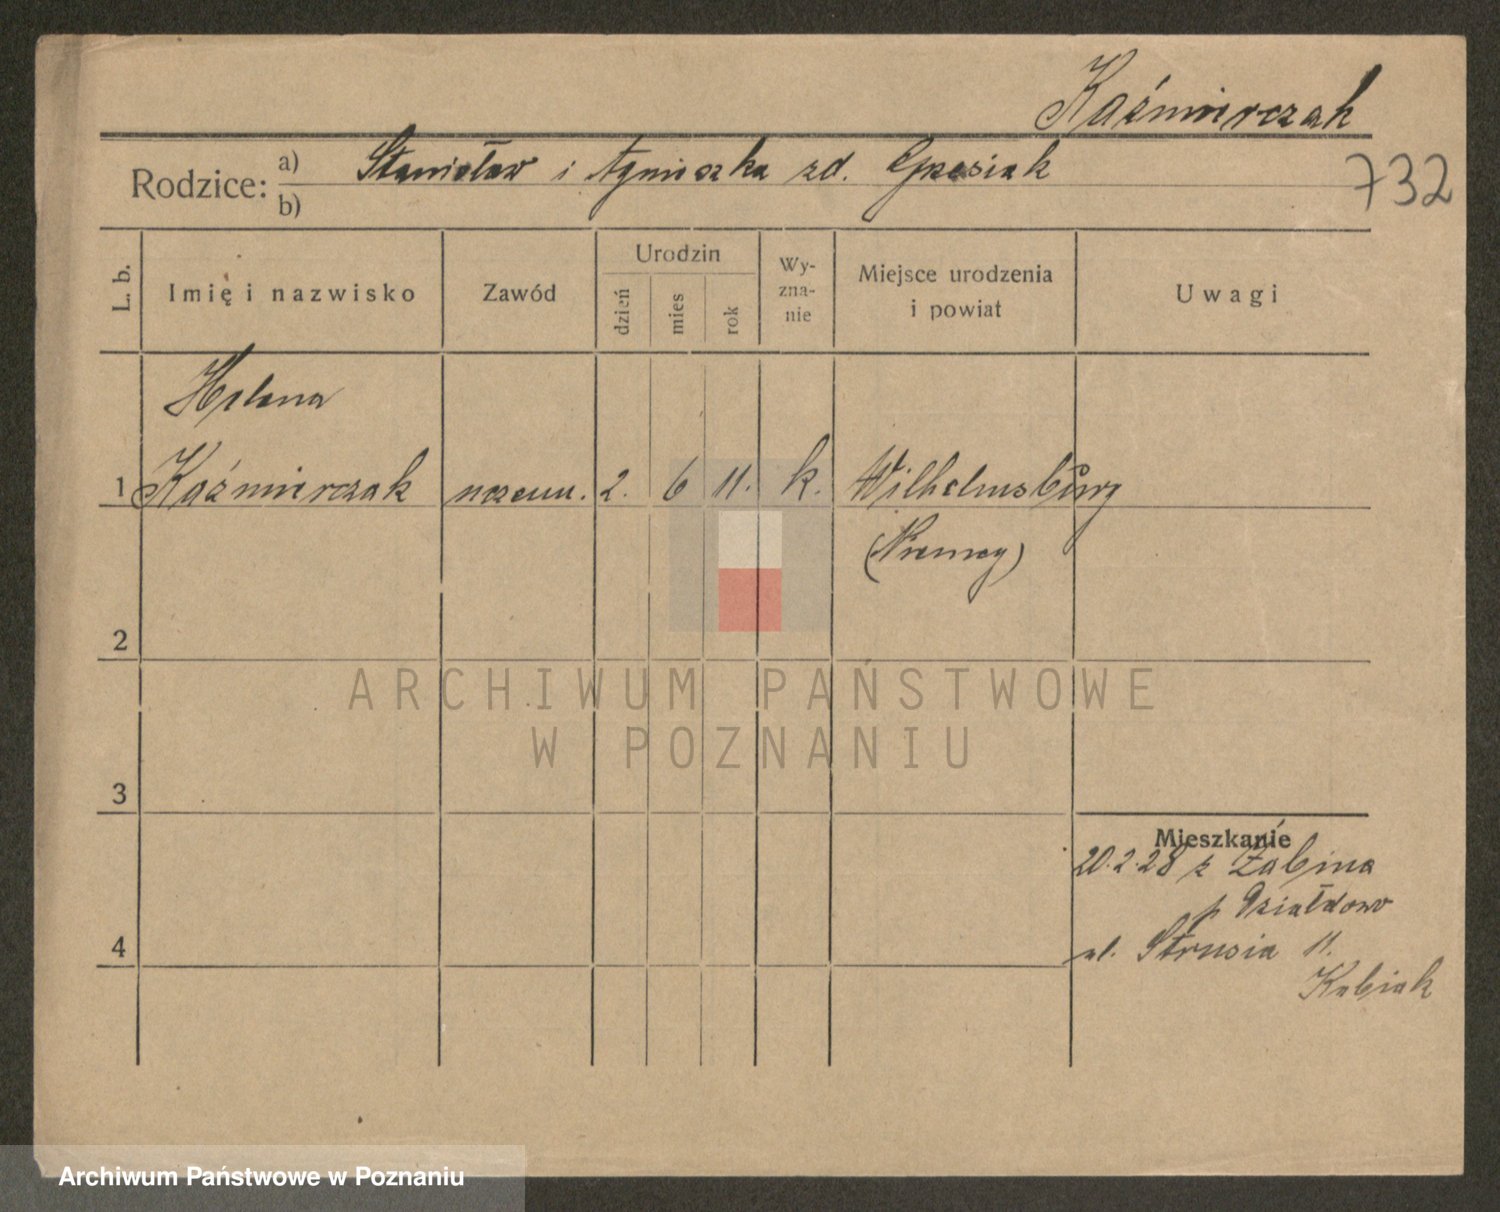 Kaźmierczak
Rodzice: a) Stanisław i Agnieszka zd. Grzesiak
b)
732
L. b.
Imię i nazwisko
Zawód
Urodzin
dzień
mies
rok
Wy-
zna-
nie
Miejsce urodzenia
i powiat
Uwagi
Helena
1 Kaźmierczak uczenn. 2. 6 11. k. Wilhelmsburg
(Niemcy)
2
ARCHIWUM PAŃSTWOWE
W POZNANIU
3
Mieszkanie
20.2.28 z Żabina
p Działdowo
4
ul. Strusia 11.
Kubiak
Archiwum Państwowe w Poznaniu